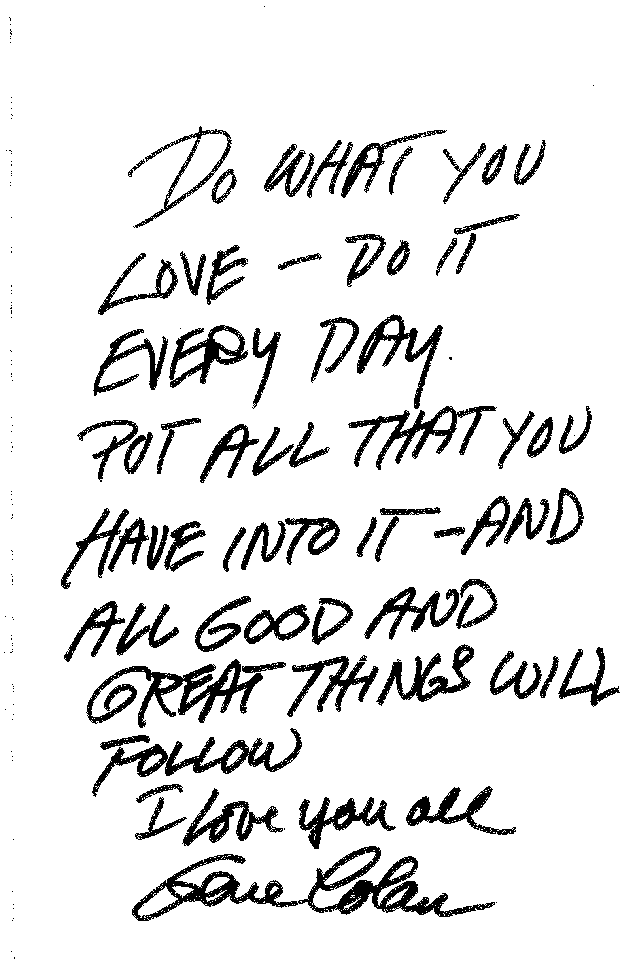 DO WHAT YOU
LOVE – DO IT
EVERY DAY.
PUT ALL THAT YOU
HAVE INTO IT – AND
ALL GOOD AND
GREAT THINGS WILL
FOLLOW
I love you all
Gene Colan